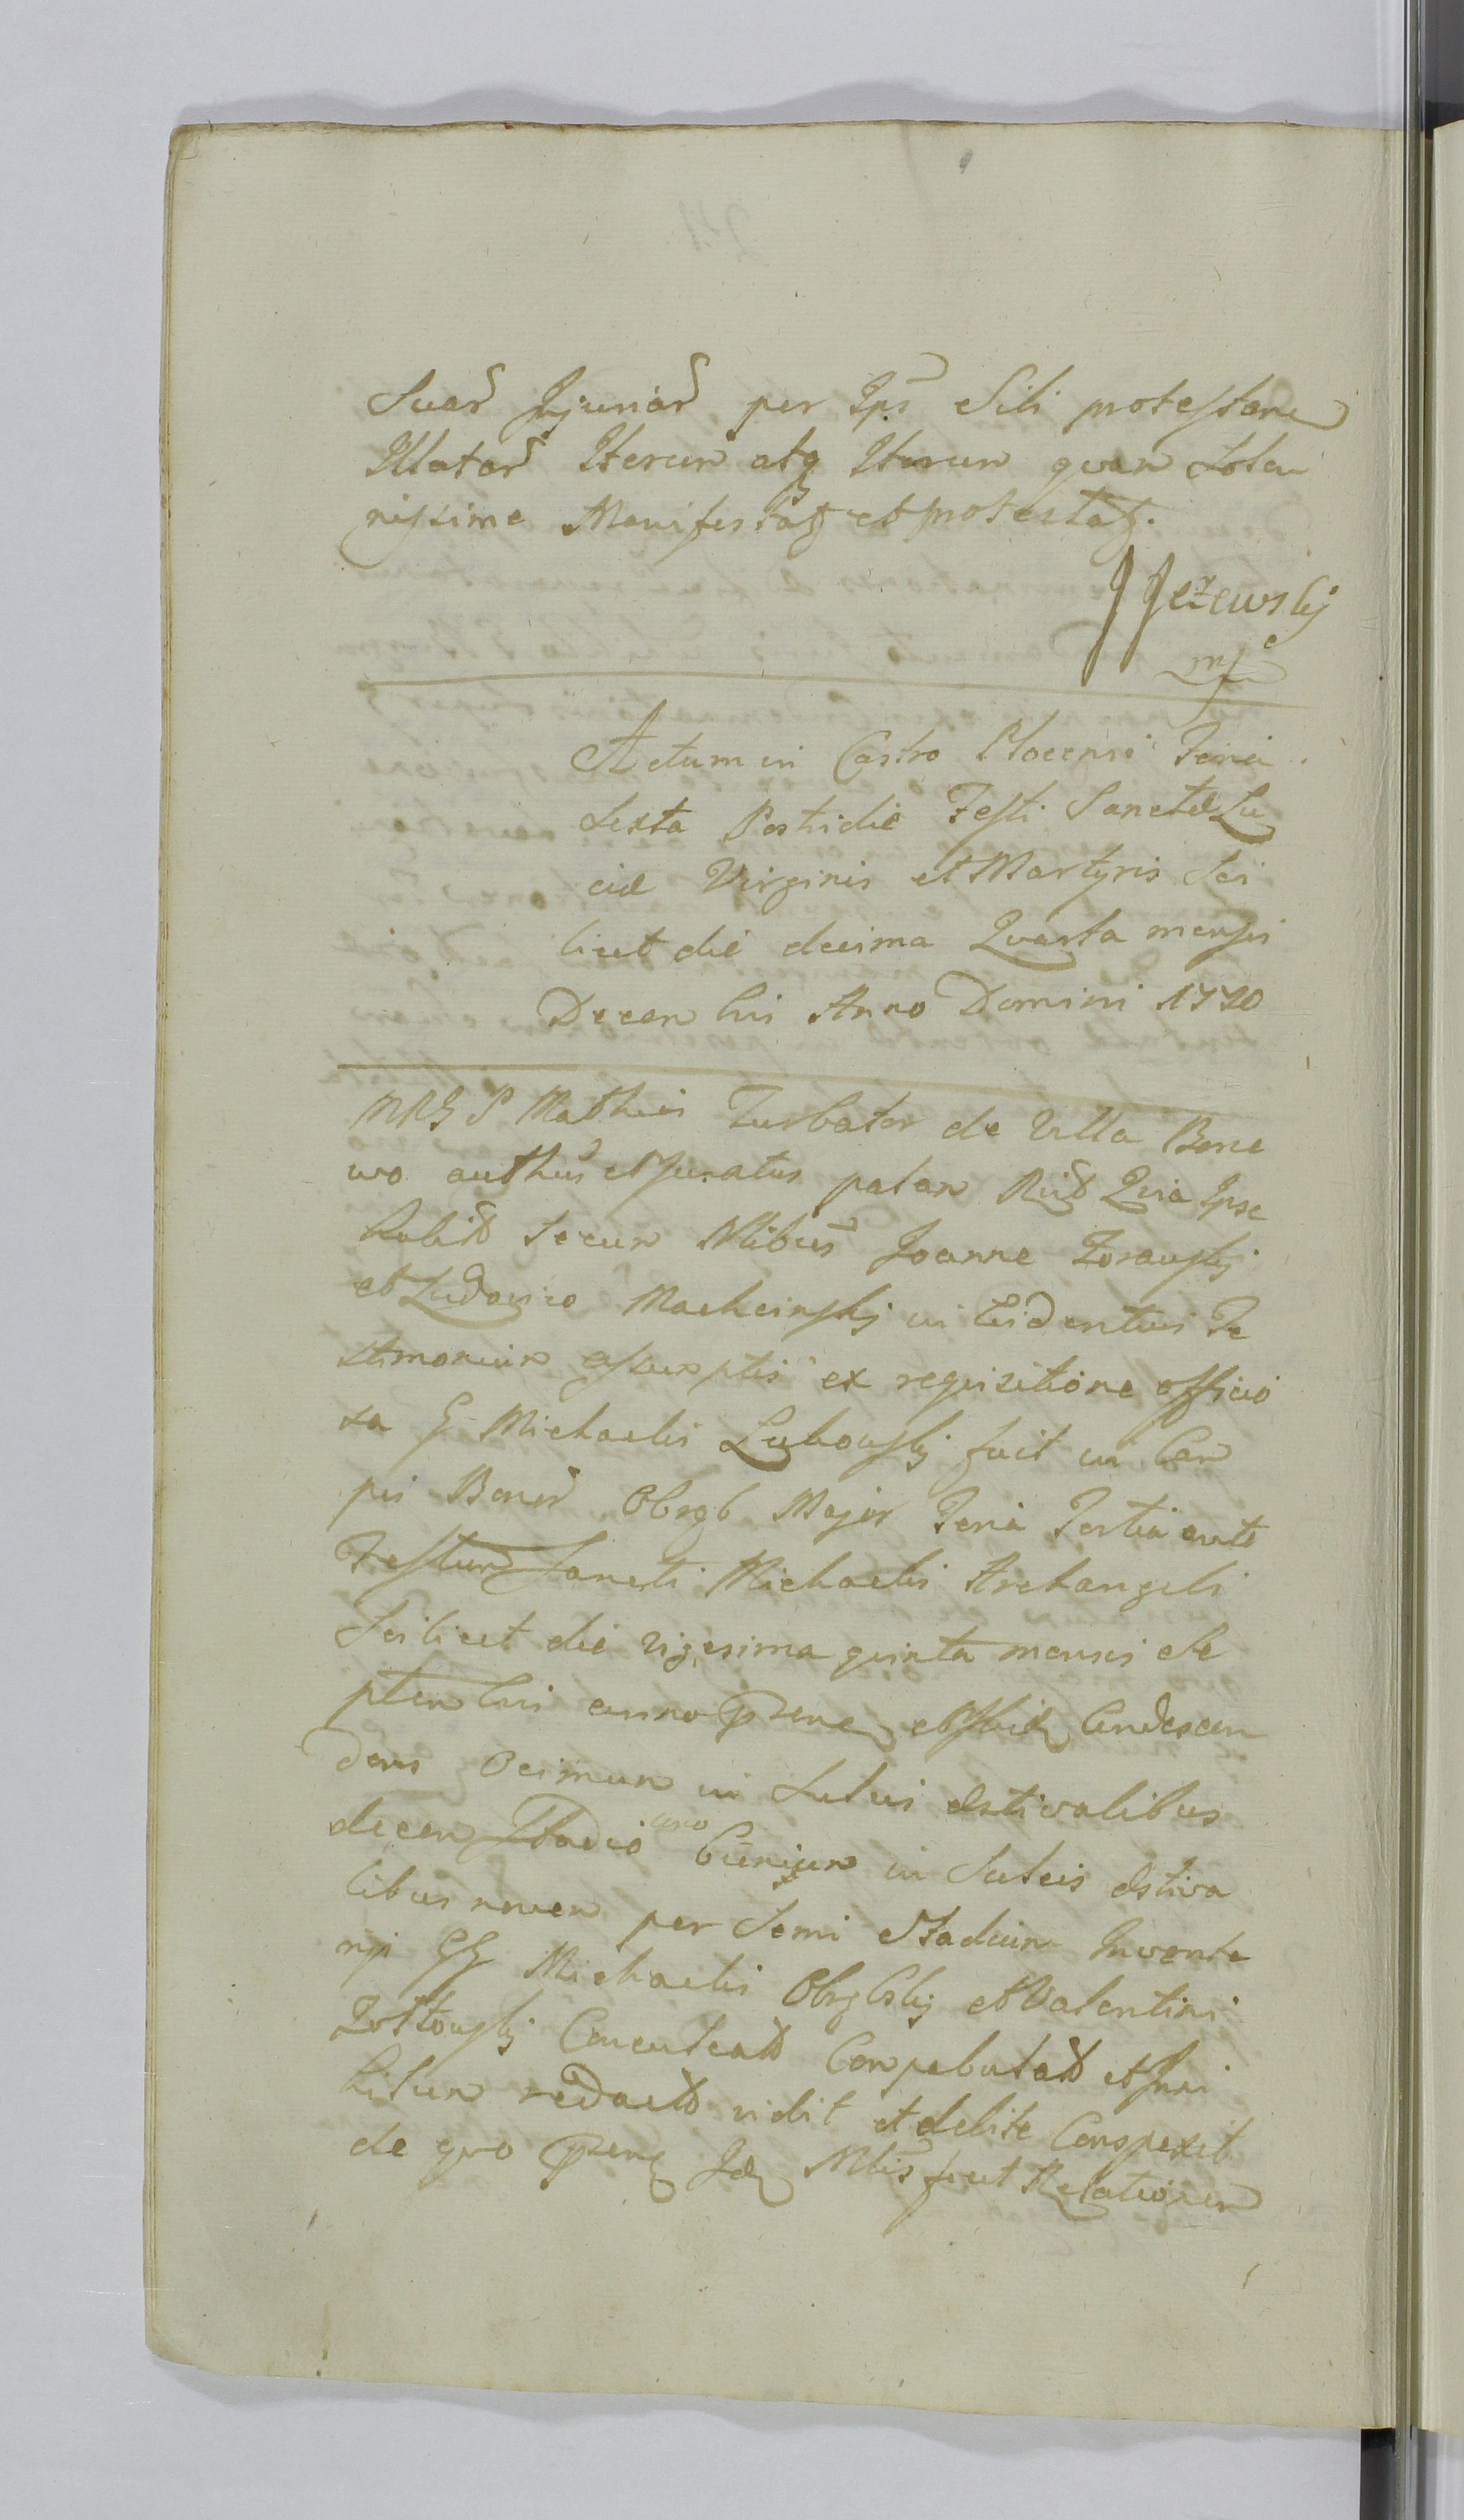 Suar Injuriar per Ips Sibi protestan
Illatar Iterum atq Iterum quam Solen
nissime Manifestatg et protestatg.
J Jeżewskij
mp
Actum in Castro Plocensi Feria
Sexta Postridie Festi Sanctæ Lu
ciæ Virginis et Martyris Sci
licet die decima Quarta mensis
Decembris Anno Domini 1770
MRG P Mathias Turbator de Villa Bone
wo authus et Juratus palam Quia Ipse
habit Secum Nlibus Joanne Zorawskij
et Ludovico Machcinskij in Evidentius Te
stimonium assumptis ex requisitione officio
sa G Michaelis Lubowskij fuit in Cam
pis Bonor Obrgb Major Feria Tertia ante
Festum Sancti Michaelis Archangeli
Scilicet die vigesima quinta mensis Se
ptembris anno præne et ibid Condescen
dens in Sulcis æstivalibus
decem Stadio uno in Sulcis æstiva
libus novem per Semi Stadium Inventa
GG Michaelis Obrgbskij et Valentini
Zottowskij Conculcat et Ini
hilum redact vidit et debite Conspexit
de quo præne Id Mtis fecit Relationem